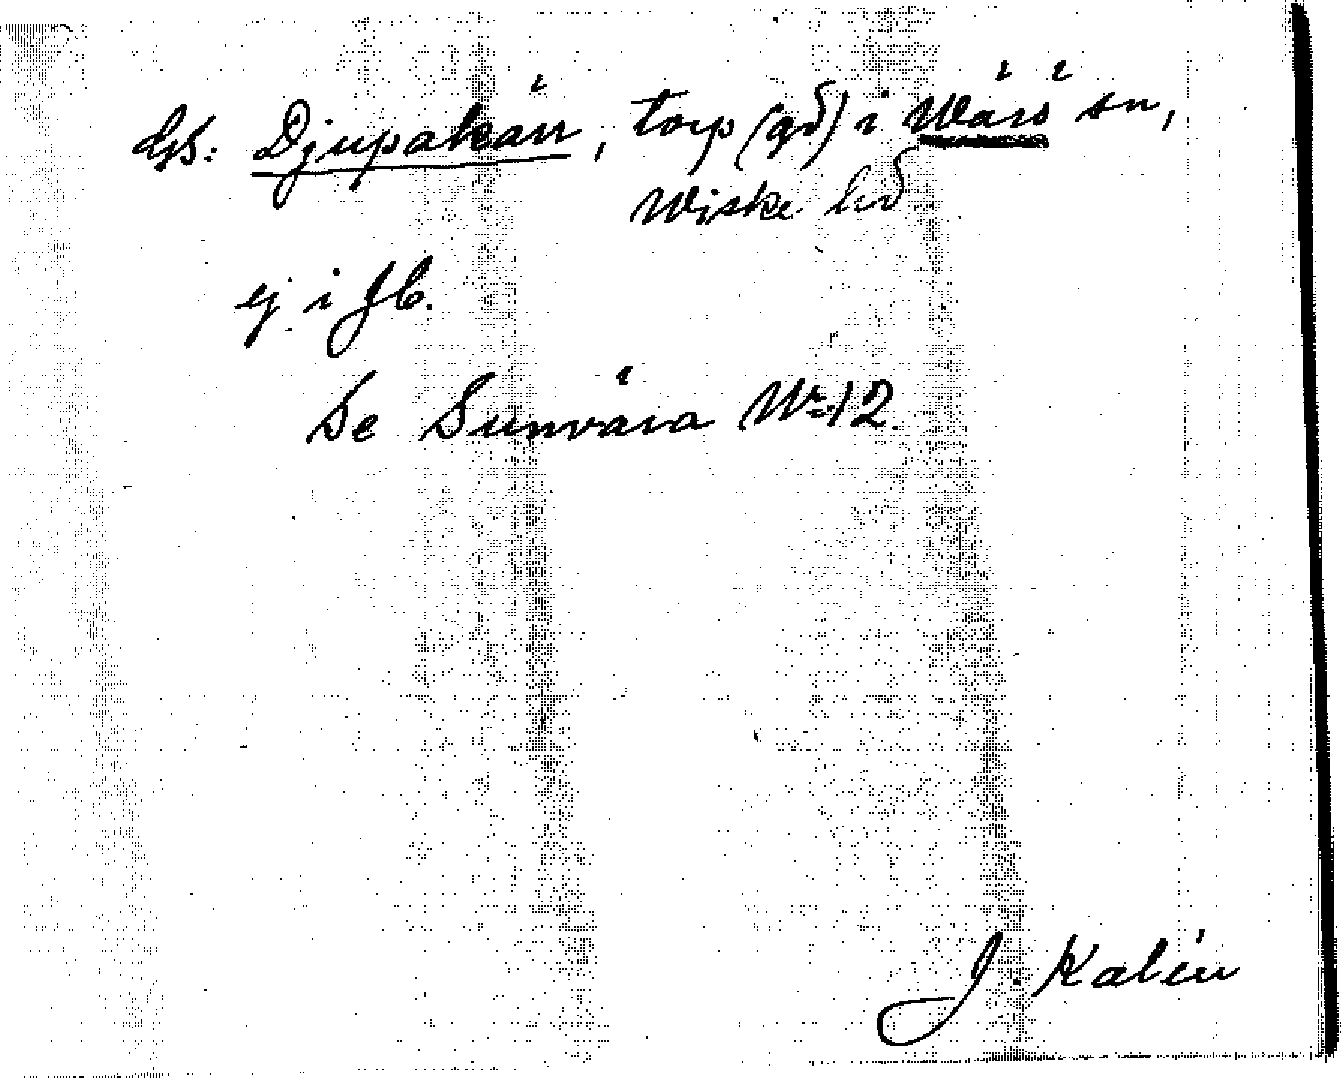 Djupakärr, torp (gd) i Wärö sn,
Wiske hd
ej i Jb.
Se Sunvära Nr 12.
J. Kalén